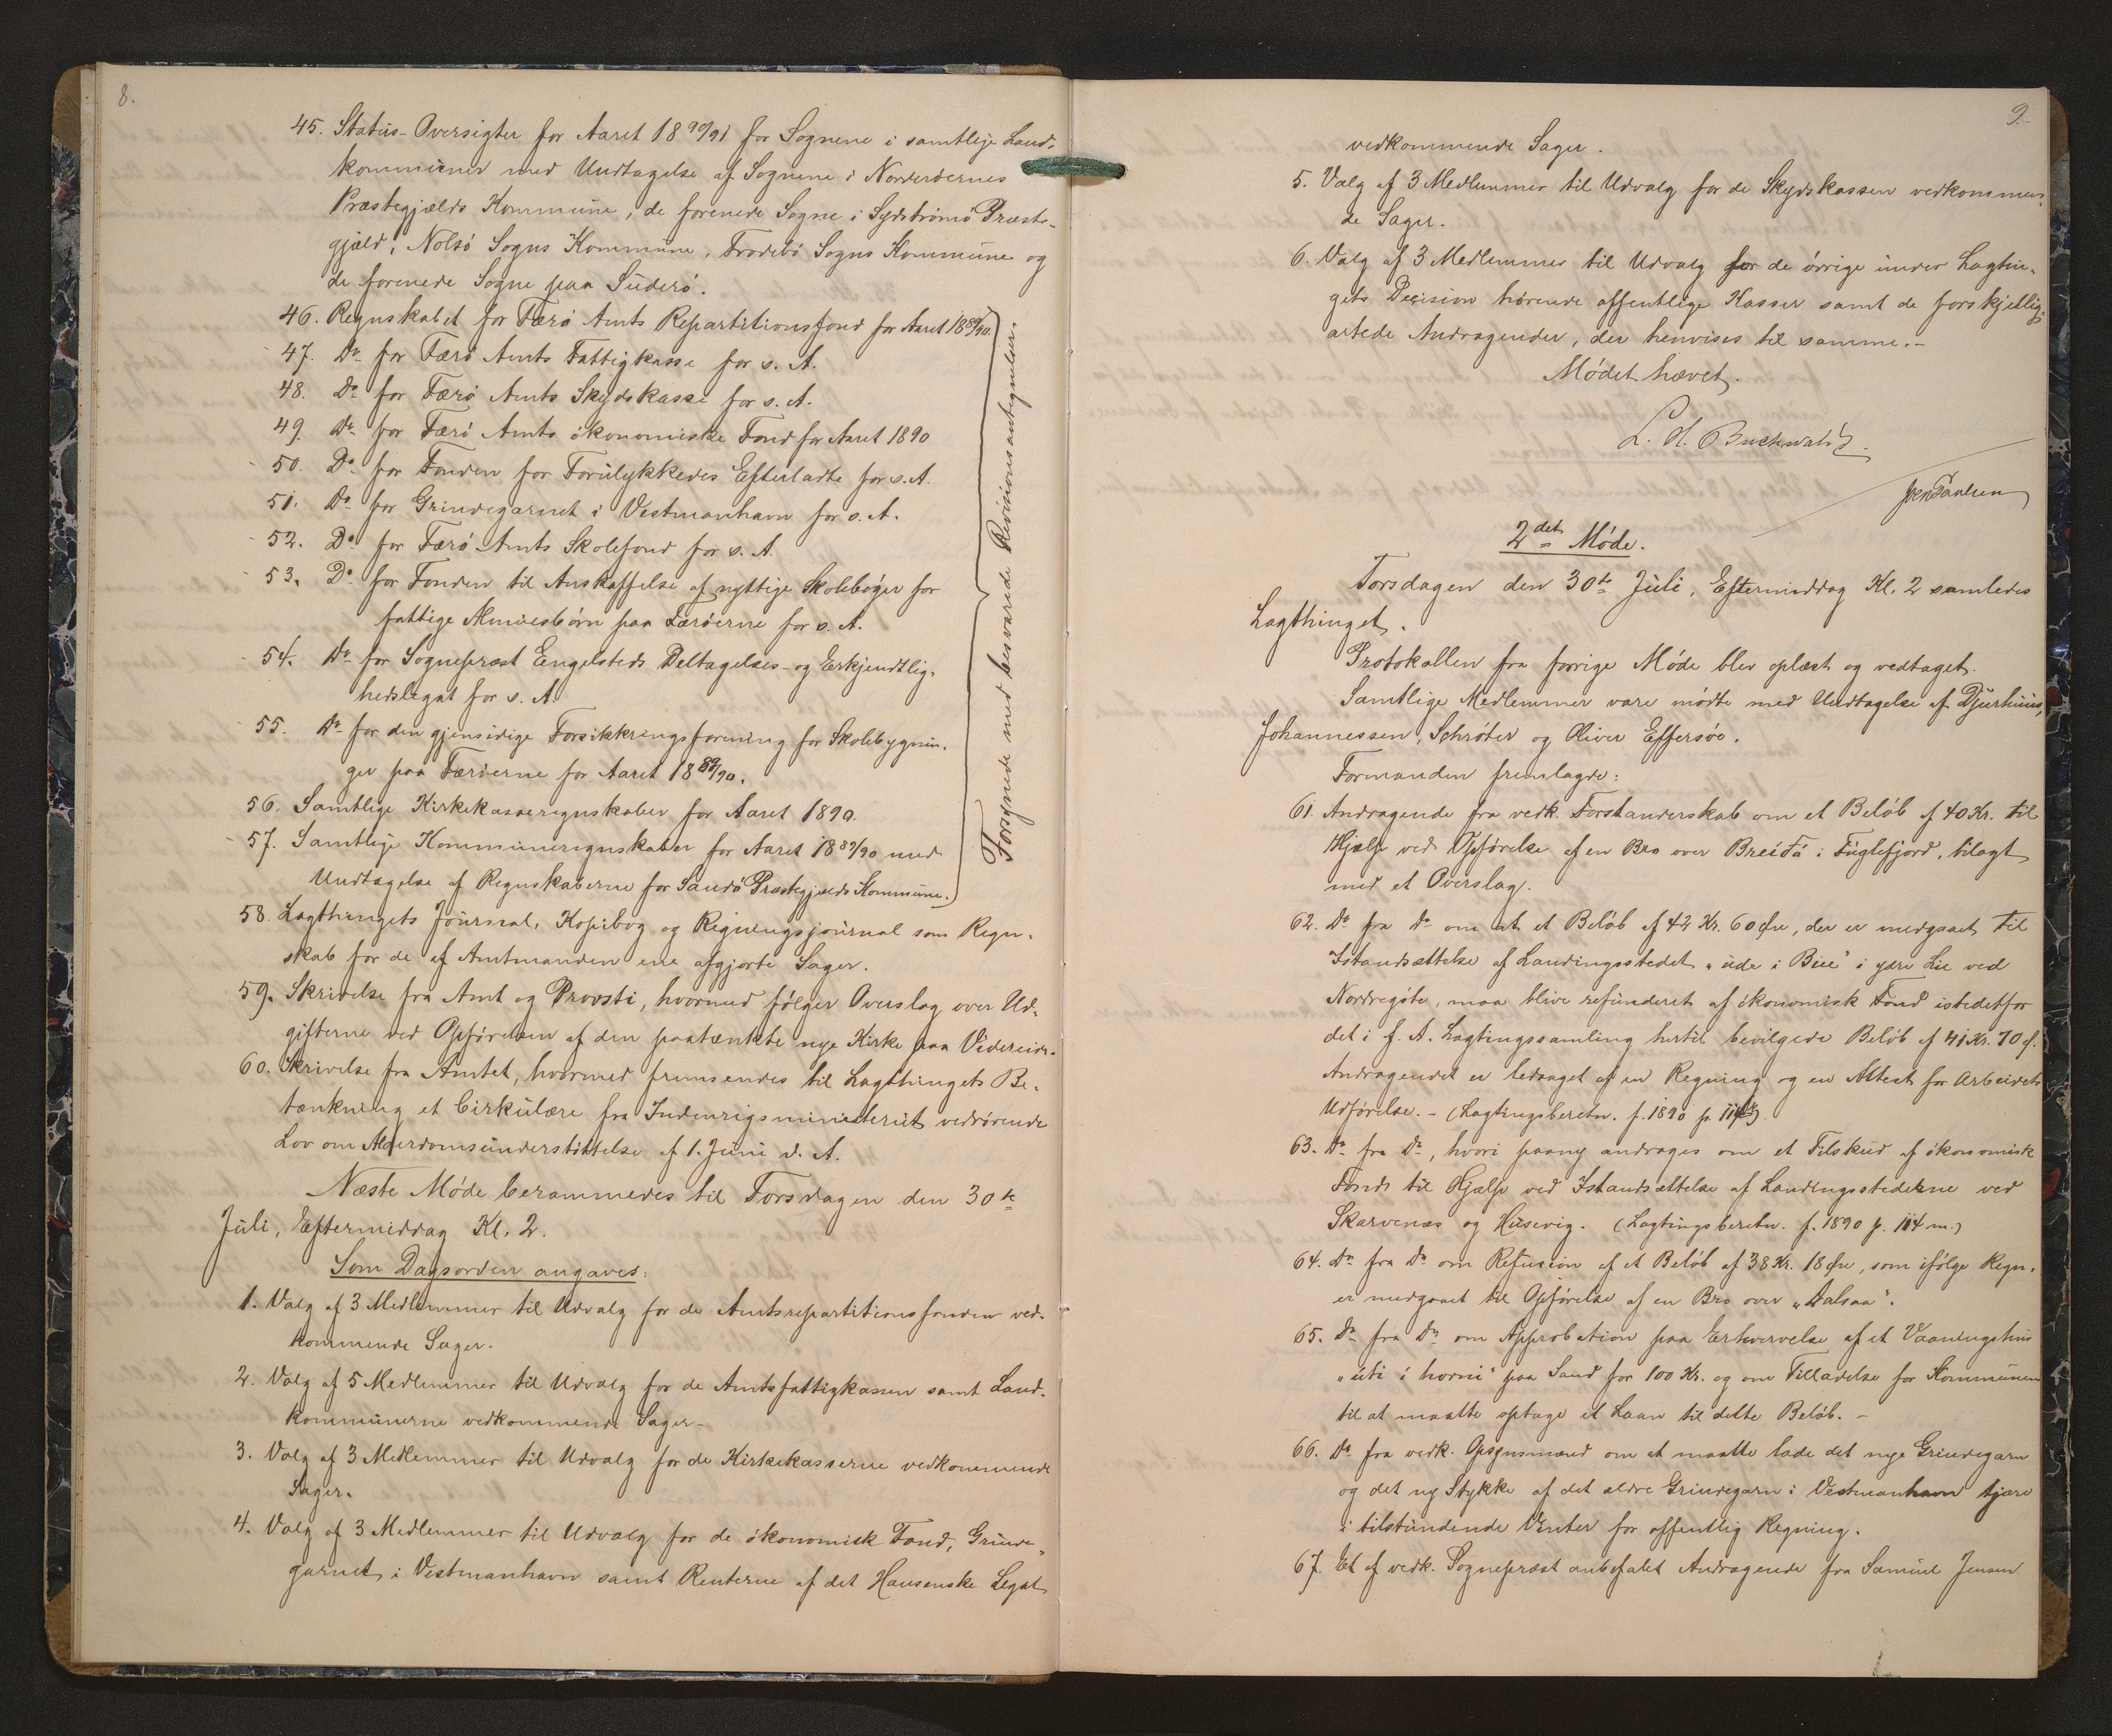 8.
45. Status-Oversigter for Aaret 18 90/91 for Sognene i samtlige Land-
kommuner med Undtagelse af Sognene i Norderøernes
Præstegjælds Kommune, de forenede Sogne i Sydstrømø Præste-
gjæld, Nolsø Sogns Kommune, Frodebø Sogns Kommune og
de forenede Sogne paa Suderø.
46. Regnskabet for Færø Amts Repartitionsfond for Aaret 18 89/90.
47. Do for Færø Amts Fattigkasse for s. A.
48. Do for Færø Amts Skydskasse for s. A.
49. Do for Færø Amts økonomiske Fond for Aaret 1890
50. Do for Fonden for Forulykkedes Efterladte for s. A.
51. Do for Grindegarnet i Vestmanhavn for s. A.
52. Do for Færø Amts Skolefond for s. A.
53. Do for Fonden til Anskaffelse af nyttige Skolebøger for
fattige Almuesbørn paa Færøerne for s. A.
54. Do for Sognepræst Engelsteds Deltagelses- og Erkjendtlig-
hedslegat for s. A.
55. Do for den gjensidige Forsikkringsforening for Skolebygnin-
ger paa Færøerne for Aaret 18 89/90.
56. Samtlige Kirkekasseregnskaber for Aaret 1890.
57. Samtlige Kommuneregnskaber for Aaret 18 89/90 med
Undtagelse af Regnskaberne for Sandø Præstegjælds Kommune.
Forsynede med besvarede Revisionsantegnelser.
58. Lagthingets Journal, Kopibog og Regningsjournal som Regn-
skab for de af Amtmanden ene afgjorte Sager.
59. Skrivelse fra Amt og Provsti, hvormed følger Overslag over Ud-
gifterne ved Opførelsen af den paatænkte nye Kirke paa Videreide.
60. Skrivelse fra Amtet, hvormed fremsendes til Lagthingets Be-
tænkning et Cirkulære fra Indenrigsministeriet vedrørende
Lov om Alderdomsunderstøttelse af 1. Juni d. A.
Næste Møde berammedes til Torsdagen den 30te
Juli, Eftermiddag Kl. 2.
Som Dagsorden angaves:
1. Valg af 3 Medlemmer til Udvalg for de Amtsrepartitionsfonden ved-
kommende Sager.
2. Valg af 5 Medlemmer til Udvalg for de Amtsfattigkassen samt Land-
kommunerne vedkommende Sager.-
3. Valg af 3 Medlemmer til Udvalg for de Kirkekasserne vedkommende
Sager.
4. Valg af 3 Medlemmer til Udvalg for de økonomisk Fond, Grinde-
garnet i Vestmanhavn samt Renterne af det Hansenske Legat
9.
vedkommende Sager.
5. Valg af 3 Medlemmer til Udvalg for de Skydskassen vedkommen-
de Sager.
6. Valg af 3 Medlemmer til Udvalg for de øvrige under Lagtin-
gets Decision hørende offentlige Kasser samt de forskjellig-
artede Andragender, der henvises til samme.-
Mødet hævet.
L. H. Buchwaldt.
Poulsen
2det Møde.
Torsdagen den 30te Juli, Eftermiddag Kl. 2 samledes
Lagthinget.
Protokollen fra forrige Møde blev oplæst og vedtaget.
Samtlige Medlemmer vare mødte med Undtagelse af Djurhuus,
Johannessen, Schrøter og Oliver Effersøe.
Formanden fremlagde:
61. Andragende fra vedk. Forstanderskab om et Beløb af 40 Kr. til
Hjælp ved Opførelse af en Bro over Breiđá i Fuglefjord, bilagt
med et Overslag.
62. Do fra Do om at et Beløb af 42 Kr. 60 Øre, der er medgaaet til
Istandsættelse af Landingsstedet "ude i Bué" i ydre Lie ved
Nordregøte, maa blive refunderet af økonomisk Fond istedetfor
det i f. A. Lagtingssamling hertil bevilgede Beløb af 41 Kr. 70 Ø.
Andragendet er ledsaget af en Regning og en Attest for Arbeidets
Udførelse.- (Lagtingsberetn. f. 1890 p. 114)
63. Do fra Do, hvori paany andrages om et Tilskud af økonomisk
Fond til Hjælp ved Istandsættelse af Landingsstederne ved
Skarvenæs og Husevig. (Lagtingsberetn. f. 1890 p. 114 m.)
64. Do fra Do om Refusion af et Beløb af 38 Kr. 18 Øre, som ifølge Regn.
er medgaaet til Opførelse af en Bro over "Dalsaa".
65. Do fra Do om Approbation paa Erhvervelse af et Vaaningshus
"úti i horni" paa Sand for 100 Kr. og om Tilladelse for Kommunen
til at maatte optage et Laan til dette Beløb.-
66. Do fra vedk. Opsynsmænd om at maatte lade det nye Grindegarn
og det ny Stykke af det ældre Grindegarn i Vestmanhavn tjære
i tilstundende Vinter for offentlig Regning.
67. Et af vedk. Sognepræst anbefalet Andragende fra Samuel Jensen